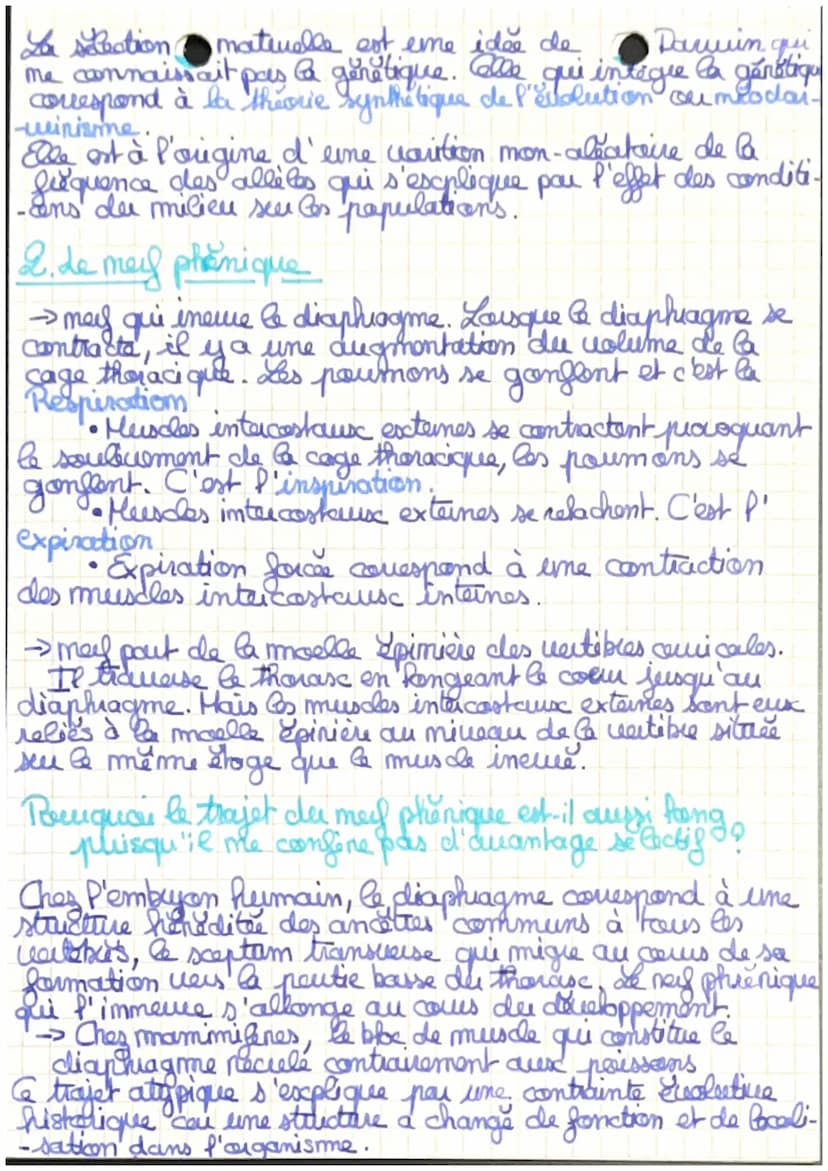 La sélection naturelle est une idée de Darwin qui
ne connaissait pas la génétique. Celle qui intègre la génétique
correspond à la théorie synthétique de l'évolution ou néodar-
-winisme.
Elle est à l'origine d'une varition non-aléatoire de la
fréquence des allèles qui s'explique par l'effet des conditi-
-ons du milieu sur les populations.
2. Le nerf phrénique
→ nerf qui inerve le diaphragme. Lorsque le diaphragme se
contracte, il y a une augmentation du volume de la
cage thoracique. Les poumons se gonflent et c'est la
Respiration
• Muscles intercostaux externes se contractent provoquant
le soulèvement de la cage thoracique, les poumons se
gonflent. C'est l'inspiration.
• Muscles intercostaux externes se relachent. C'est l'
expiration
• Expiration forcée correspond à une contraction
des muscles intercostaux internes.
→ nerf part de la moelle épinière des vertèbres cervicales.
Il traverse le thorax en longeant le cœur jusqu'au
diaphragme. Mais les muscles intercostaux externes sont eux
reliés à la moelle épinière au niveau de la vertèbre située
sur le même étage que le muscle inervé.
Pourquoi le trajet du nerf phrénique est-il aussi long
puisqu'il ne confère pas d'avantage sélectif ?
Chez l'embryon humain, le diaphragme correspond à une
structure héréditée des ancêtres communs à tous les
vertébrés, le sceptum transverse qui migre au cours de sa
formation vers la partie basse du thorax. Le nerf phrénique
qui l'innerve s'allonge au cours du développement.
→ Chez mammifères, le bloc de muscle qui constitue le
diaphragme reculé contrairement aux poissons
Ce trajet atypique s'explique par une contrainte évolutive
historique car une structure a changé de fonction et de locali-
-sation dans l'organisme.